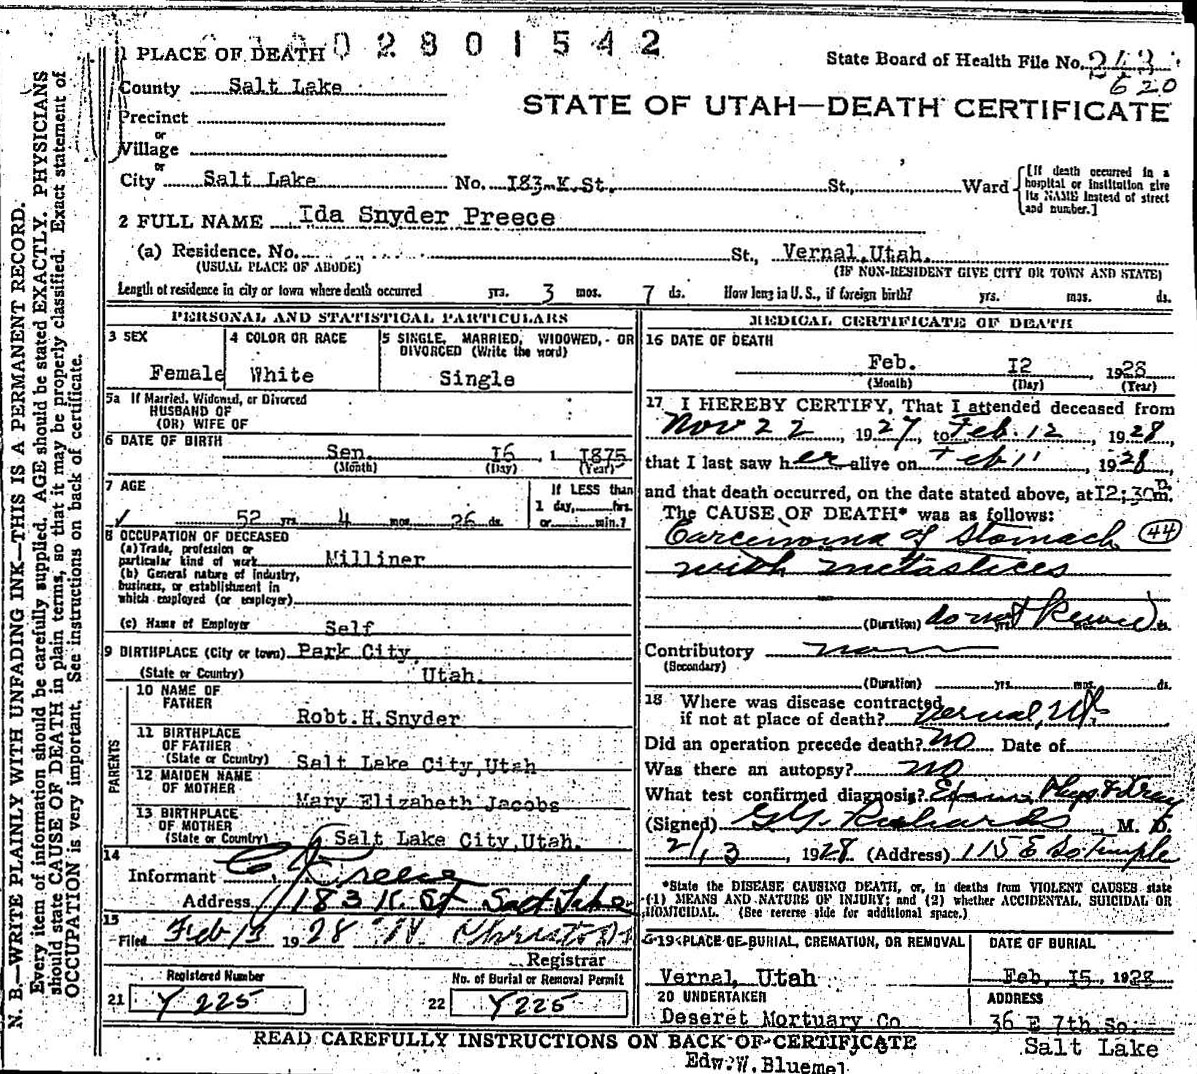 02801542
1 PLACE OF DEATH
State Board of Health File No. 243
620
County Salt Lake
STATE OF UTAH—DEATH CERTIFICATE
Precinct
or
Village
or
City Salt Lake No. 183 K St. St., Ward
[If death occurred in a hospital or institution give its NAME instead of street and number.]
2 FULL NAME Ida Snyder Preece
(a) Residence. No. St., Vernal, Utah.
(USUAL PLACE OF ABODE) (IF NON-RESIDENT GIVE CITY OR TOWN AND STATE)
Length of residence in city or town where death occurred yrs. 3 mos. 7 ds. How long in U. S., if foreign birth? yrs. mos. ds.
PERSONAL AND STATISTICAL PARTICULARS
3 SEX
Female
4 COLOR OR RACE
White
5 SINGLE, MARRIED, WIDOWED, OR
DIVORCED (Write the word)
Single
5a If Married, Widowed, or Divorced
HUSBAND OF
(OR) WIFE OF
6 DATE OF BIRTH
Sep. 16, 1875
(Month) (Day) (Year)
7 AGE
52 yrs. 4 mos. 26 ds.
If LESS than
1 day, hrs.
or min.?
8 OCCUPATION OF DECEASED
(a) Trade, profession or
particular kind of work Milliner
(b) General nature of industry,
business, or establishment in
which employed (or employer)
(c) Name of Employer Self
9 BIRTHPLACE (City or town) Park City,
(State or Country) Utah.
PARENTS
10 NAME OF
FATHER
Robt. H. Snyder
11 BIRTHPLACE
OF FATHER
(State or Country) Salt Lake City, Utah
12 MAIDEN NAME
OF MOTHER
Mary Elizabeth Jacobs
13 BIRTHPLACE
OF MOTHER
(State or Country) Salt Lake City, Utah.
14
Informant Preece
Address 183 K St Salt Lake
15
Filed Feb 13 1928
Registrar
Registered Number
21 Y 225
No. of Burial or Removal Permit
22 Y225
MEDICAL CERTIFICATE OF DEATH
16 DATE OF DEATH
Feb. 12, 1928
(Month) (Day) (Year)
17 I HEREBY CERTIFY, That I attended deceased from
Nov 22, 1927, to Feb. 12, 1928,
that I last saw her alive on Feb 11, 1928,
and that death occurred, on the date stated above, at 12:30 m.
The CAUSE OF DEATH* was as follows:
Carcinoma of Stomach (44)
with metastices
(Duration) do not yrs. mos. ds.
Contributory
(Secondary)
(Duration) yrs. mos. ds.
18 Where was disease contracted
if not at place of death? Vernal, Ut
Did an operation precede death? No Date of
Was there an autopsy? no
What test confirmed diagnosis? Phys & Xray
(Signed) G. G. Richards, M. D.
2/13, 1928 (Address) 115 E So Temple
*State the DISEASE CAUSING DEATH, or, in deaths from VIOLENT CAUSES state
(1) MEANS AND NATURE OF INJURY; and (2) whether ACCIDENTAL, SUICIDAL OR
HOMICIDAL. (See reverse side for additional space.)
19 PLACE OF BURIAL, CREMATION, OR REMOVAL
Vernal, Utah
DATE OF BURIAL
Feb. 15, 1928
20 UNDERTAKER
Deseret Mortuary Co
ADDRESS
36 E 7th So.
READ CAREFULLY INSTRUCTIONS ON BACK OF CERTIFICATE
Salt Lake
Edw. W. Bluemel
N. B.—WRITE PLAINLY WITH UNFADING INK—THIS IS A PERMANENT RECORD.
Every item of information should be carefully supplied. AGE should be stated EXACTLY. PHYSICIANS
should state CAUSE OF DEATH in plain terms, so that it may be properly classified. Exact statement of
OCCUPATION is very important. See instructions on back of certificate.